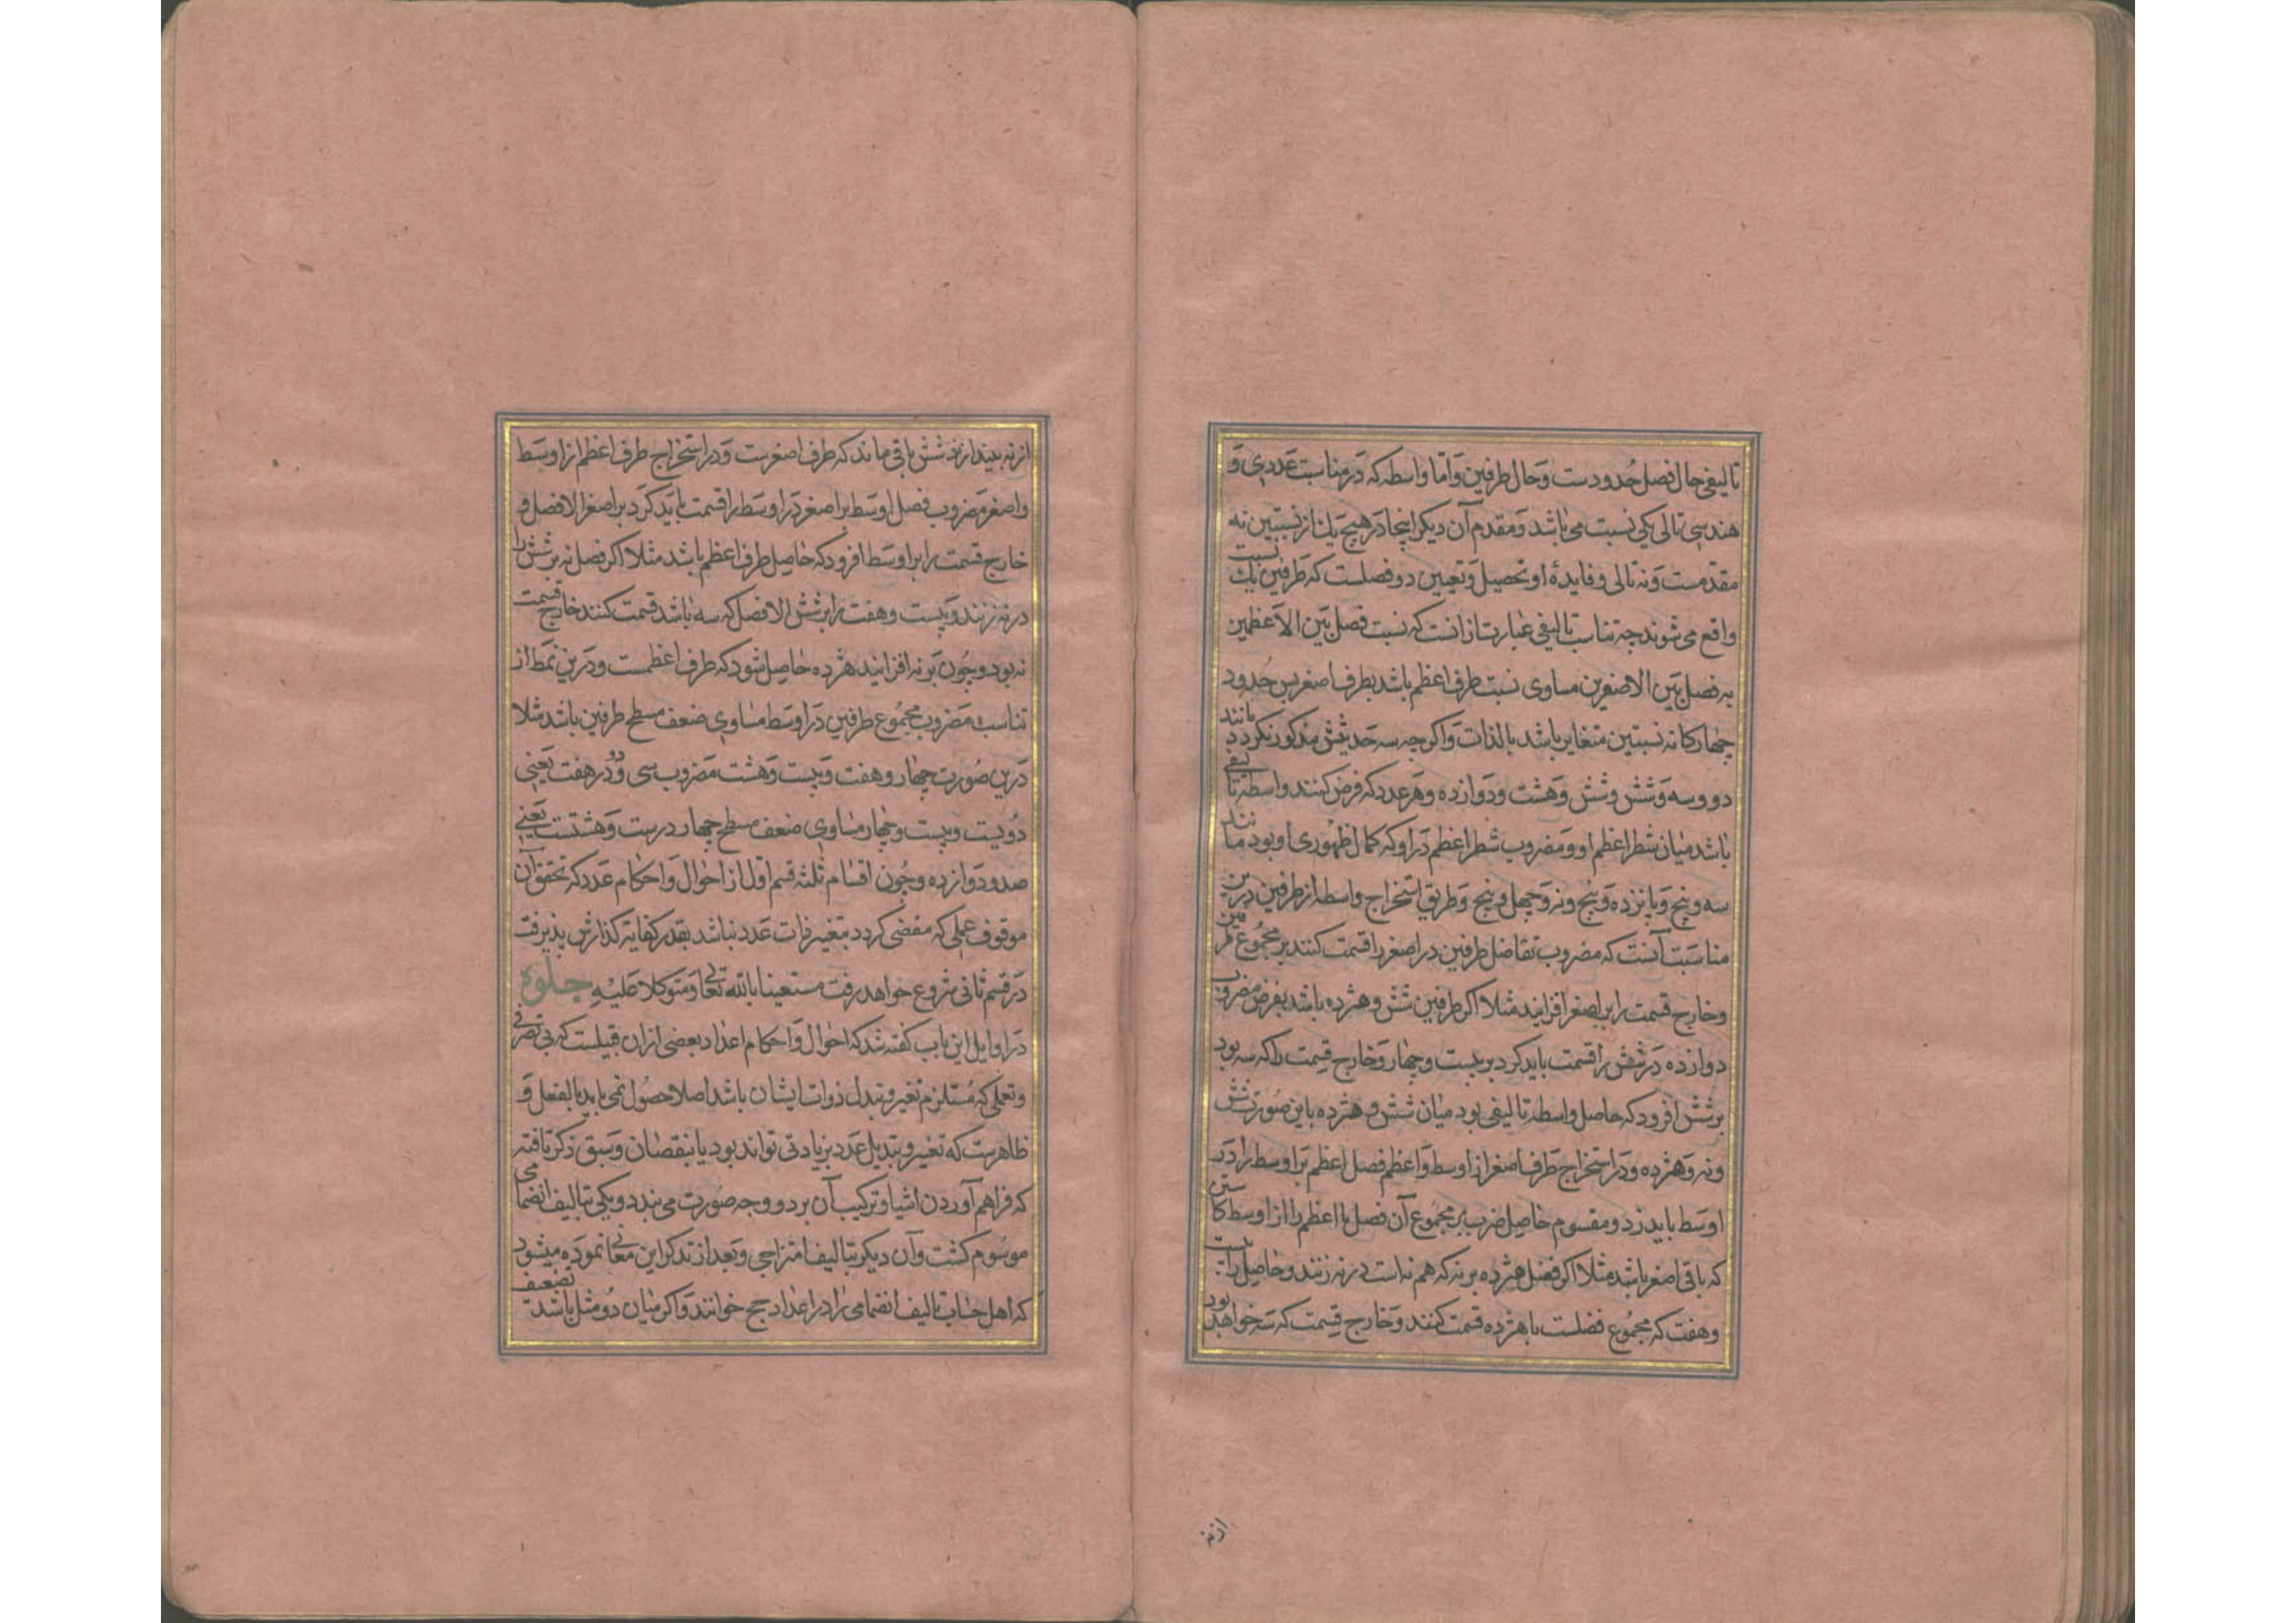 تالیفی حال فصل حدودست وحال طرفین واما واسطه که در مناسبت عددی و
هندسی تالی یکی نسبت می باشد ومقدم آن دیگر اینجا در هیچ یک از نسبتین نه
مقدمست ونه تالی وفایدهٔ او تحصیل وتعیین دو فصلست که طرفین یک نسبت
واقع می شوند چه تناسب تالیفی عبارت از انست که نسبت فصل بین الاعظمین
به فصل بین الاصغرین مساوی نسبت طرف اعظم باشد بطرف اصغر پس حدود
چهارکانه نسبتین متغایر باشد بالذات واکرچه سه حدیثش مذکور نکردد مانند
دو وسه وشش وشش وهشت ودوازده وهر عدد که فرض کنند واسطه تالیفی
باشد میان شطر اعظم او ومضروب شطر اعظم در او که کمال ظهوری او بود مانند
سه وپنج وپانزده وپنج ونه وچهل وپنج وطریق استخراج واسطه از طرفین درین
مناسبت آنست که مضروب تفاضل طرفین در اصغر را قسمت کنند بر مجموع طرفین
وخارج قسمت را بر اصغر افزایند مثلا اکر طرفین شش وهژده باشد بفرض مضروب
دوازده در شش را قسمت باید کرد بر بیست وچهار وخارج قسمت را که سه بود
بر شش افزود که حاصل واسطه تالیفی بود میان شش وهژده باین صورت شش
ونه وهژده ودر استخراج طرف اصغر از اوسط واعظم فصل اعظم بر اوسط را در
اوسط باید زد ومقسوم حاصل ضرب بر مجموع آن فصل با اعظم را از اوسط کاستن
که باقی اصغر باشد مثلا اکر فصل هژده بر نه که هم نه است در نه زنند وحاصل را بر بیست
وهفت که مجموع فضلست با هژده قسمت کنند وخارج قسمت که سه خواهد بود
از نه
از نه بیندازند شش باقی ماند که طرف اصغرست ودر استخراج طرف اعظم از اوسط
واصغر مضروب فصل اوسط بر اصغر در اوسط را قسمت باید کرد بر اصغر الا فصل و
خارج قسمت را بر اوسط افزود که حاصل طرف اعظم باشد مثلا اکر فصل نه بر شش را
در نه زنند وبیست وهفت را بر شش الا فصل که سه باشد قسمت کنند خارج قسمت
نه بود وچون بر نه افزایند هژده حاصل شود که طرف اعظمست ودرین نمط از
تناسب مضروب مجموع طرفین در اوسط مساوی ضعف مسطح طرفین باشد مثلا
درین صورت چهار وهفت وبیست وهشت مضروب سی ودو در هفت یعنی
دویست وبیست وچهار مساوی ضعف مسطح چهار در بیست وهشتست یعنی
صد ودوازده وچون اقسام ثلثه قسم اول از احوال واحکام عدد که تحقق آن
موقوف عملی که مفضی کردد بتغییر ذات عدد نباشد بقدر کفایه کذارش پذیرفت
در قسم ثانی شروع خواهد رفت مستعینا بالله تعالی ومتوکلا علیه جلوه
در اوایل این باب کفته شد که احوال واحکام اعداد بعضی از ان قبیلست که بی تصرفی
وتعملی که مستلزم تغیر وتبدل ذوات ایشان باشد اصلا حصول نمی یابد بالفعل و
ظاهرست که تغیر وتبدیل عدد بزیادتی تواند بود یا بنقصان وسبق ذکر یافته
که فراهم آوردن اشیا وترکیب آن بر دو وجه صورت می بندد ویکی بتالیف انضمامی
موسوم کشت وآن دیکر بتالیف امتزاجی وبعد از تذکر این معانی نموده میشود
که اهل حساب تالیف انضمامی را در اعداد جمع خوانند واکر میان دو مثل باشد تضعیف